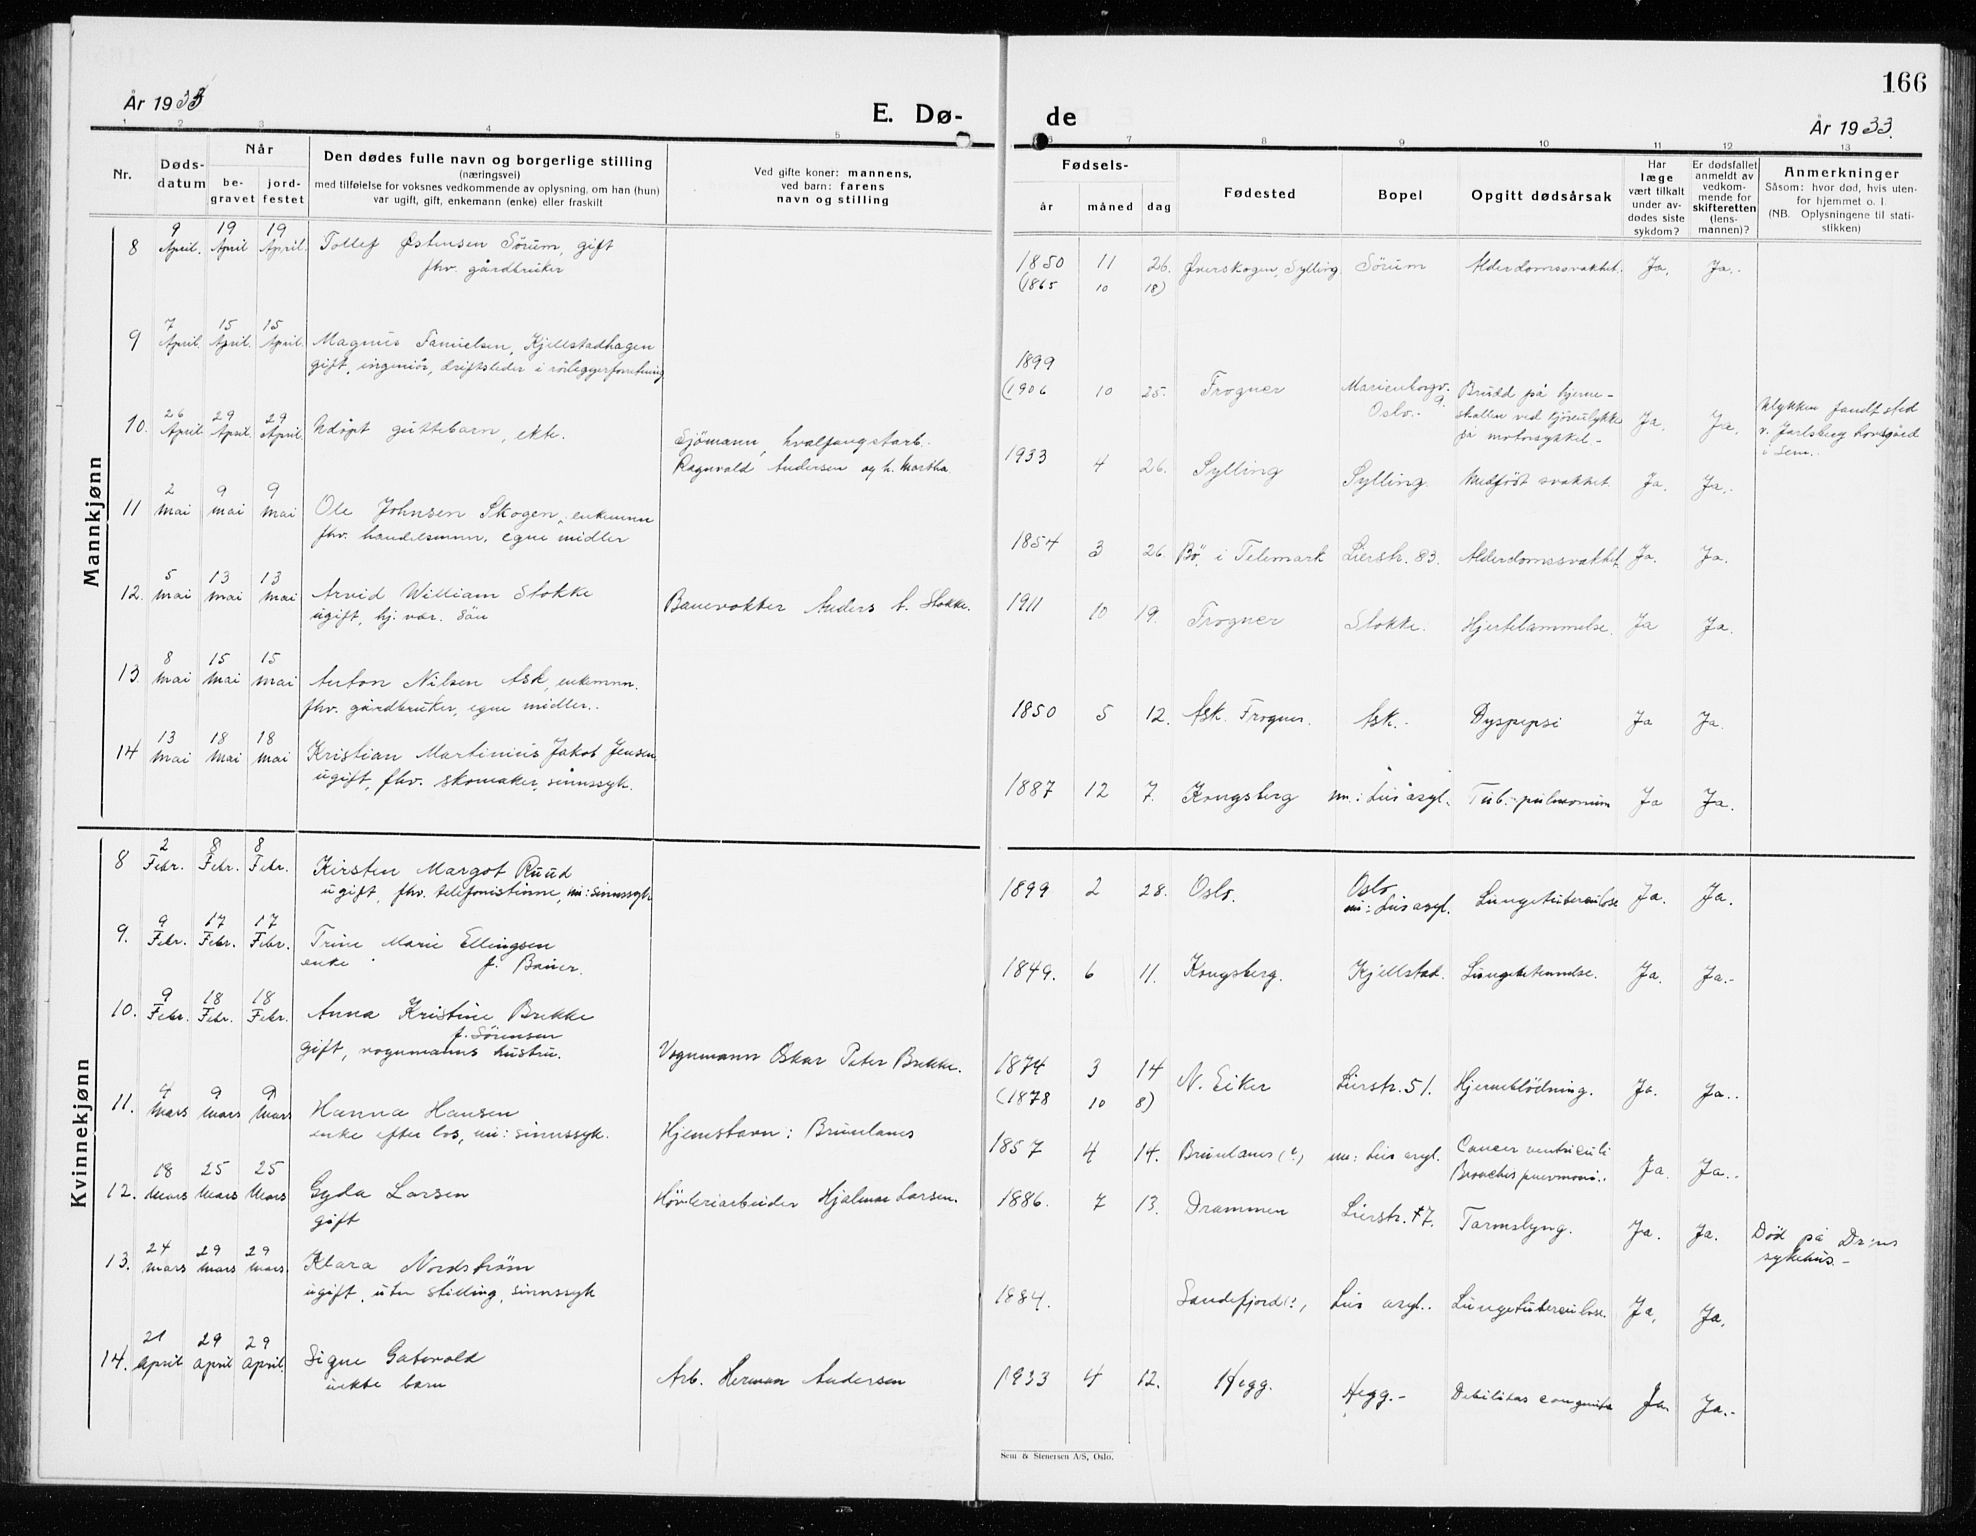 166
År 1933
E. Dø-
de
År 1933.
1 2 3 4 5 6 7 8 9 10 11 12 13
Nr.
Døds-
datum
Når
be-
gravet
jord-
festet
Den dødes fulle navn og borgerlige stilling
(næringsvei)
med tilføielse for voksnes vedkommende av oplysning, om han (hun)
var ugift, gift, enkemann (enke) eller fraskilt
Ved gifte koner: mannens,
ved barn: farens
navn og stilling
Fødsels-
år måned dag
Fødested
Bopel
Opgitt dødsårsak
Har
læge
vært tilkalt
under av-
dødes siste
sykdom?
Er dødsfallet
anmeldt av
vedkom-
mende for
skifteretten
(lens-
mannen)?
Anmerkninger
Såsom: hvor død, hvis uten-
for hjemmet o. l.
(NB. Oplysningene til stati-
stikken)
Mannkjønn
8 9 April. 19 April 19 April. Tollef Østensen Sørum, gift
fhv. gårdbruker
1850 11 26. Øverskogen, Sylling Sørum Alderdomssvakhet. Ja. Ja.
(1865 10 18)
9 7 April. 15 April. 15 April. Magnus Danielsen, Kjellstadhagen
gift, ingeniør, driftsleder i rörleggerforretning
1899
(1906 10 25. Frogner Marienborgv. 9. Oslo. Brudd på hjerne-
skallen ved kjöreulykke
på motorsykkel - Ja. Ja. Ulykken fandt sted
v. Jarlsberg hovedgård
i Sem.
10. 26 April 29 April. 29 April. Udöpt guttebarn, ekte.
Sjömann, hvalfangstarb.
Ragnvald Andersen og h. Martha
1933 4 26. Sylling Sylling Medfödt svakhet Ja. Ja.
11 2 mai 9 mai 9 mai Ole Johnsen Skogen, enkemann
fhv. handelsmann, egne midler
1854 3 26. Bö i Telemark Lierstr. 83. Alderdomssvakhet Ja. Ja.
12. 5 mai 13 mai 13 mai Arvid William Stokke
ugift, hj. vær. sön
Banevokter Anders A. Stokke.
1911 10 19. Frogner Stokke. Hjertelammelse. Ja Ja.
13. 8 mai 15 mai 15 mai Anton Nilsen Ask, enkemann.
fhv. gårdbruker, egne midler.
1850 5 12. Ask. Frogner. Ask. Dyspepsi Ja Ja.
14 13 mai 18 mai 18 mai Kristian Martinius Jakob Jensen
ugift, fhv. skomaker, sinnssyk.
1887 12 7. Kongsberg nu: Lier asyl. Tub. pulmonum Ja Ja.
Kvinnekjønn
8 2 Febr. 8 Febr. 8 Febr. Kirsten Margot Ruud
ugift, fhv. telefonistinne, nu: sinnssyk
1899 2 28. Oslo. Oslo
nu: Lier asyl. Lungetuberculose Ja. Ja.
9. 9 Febr. 17 Febr. 17 Febr. Trine Marie Ellingsen
enke f. Bauer.
1849. 6 11. Kongsberg. Kjellstad. Lungebetennelse. Ja. Ja.-
10. 9 Febr. 18 Febr. 18 Febr. Anna Kristine Brekke
f. Sörensen
gift, vognmanns hustru.
Vognmann Oskar Peter Brekke.
1874 3 14 N. Eiker Lierstr. 51. Hjerneblödning. Ja. Ja..
(1878 10 8)
11. 4 mars 9 mars 9 mars Hanna Hansen
enke efter los, nu: sinnssyk.
Hjemstavn: Brunlanes
1857 4 14. Brunlanes (?) nu: Lier asyl. Cancer ventriculi
Ja. Ja..
12. 18 mars 25 mars 25 mars Gyda Larsen
gift
Hövleriarbeider Hjalmar Larsen.
1886. 7 13. Drammen Lierstr. 17. Tarmslyng. Ja. Ja. Död på Dr:ns
sykehus.-
13. 24 mars 29 mars 29 mars. Klara Nordstrøm
ugift, uten stilling, sinnssyk
1884. Sandefjord(?) Lier asyl.. Lungetuberculose. Ja, Ja,
14. 21 April 29 April 29 April. Signe
uekte barn
Arb. Herman Andersen
1933 4 12. Hegg. Hegg.- Debilitas congenita Ja. Ja.-
Sem & Stenersen A/S, Oslo.